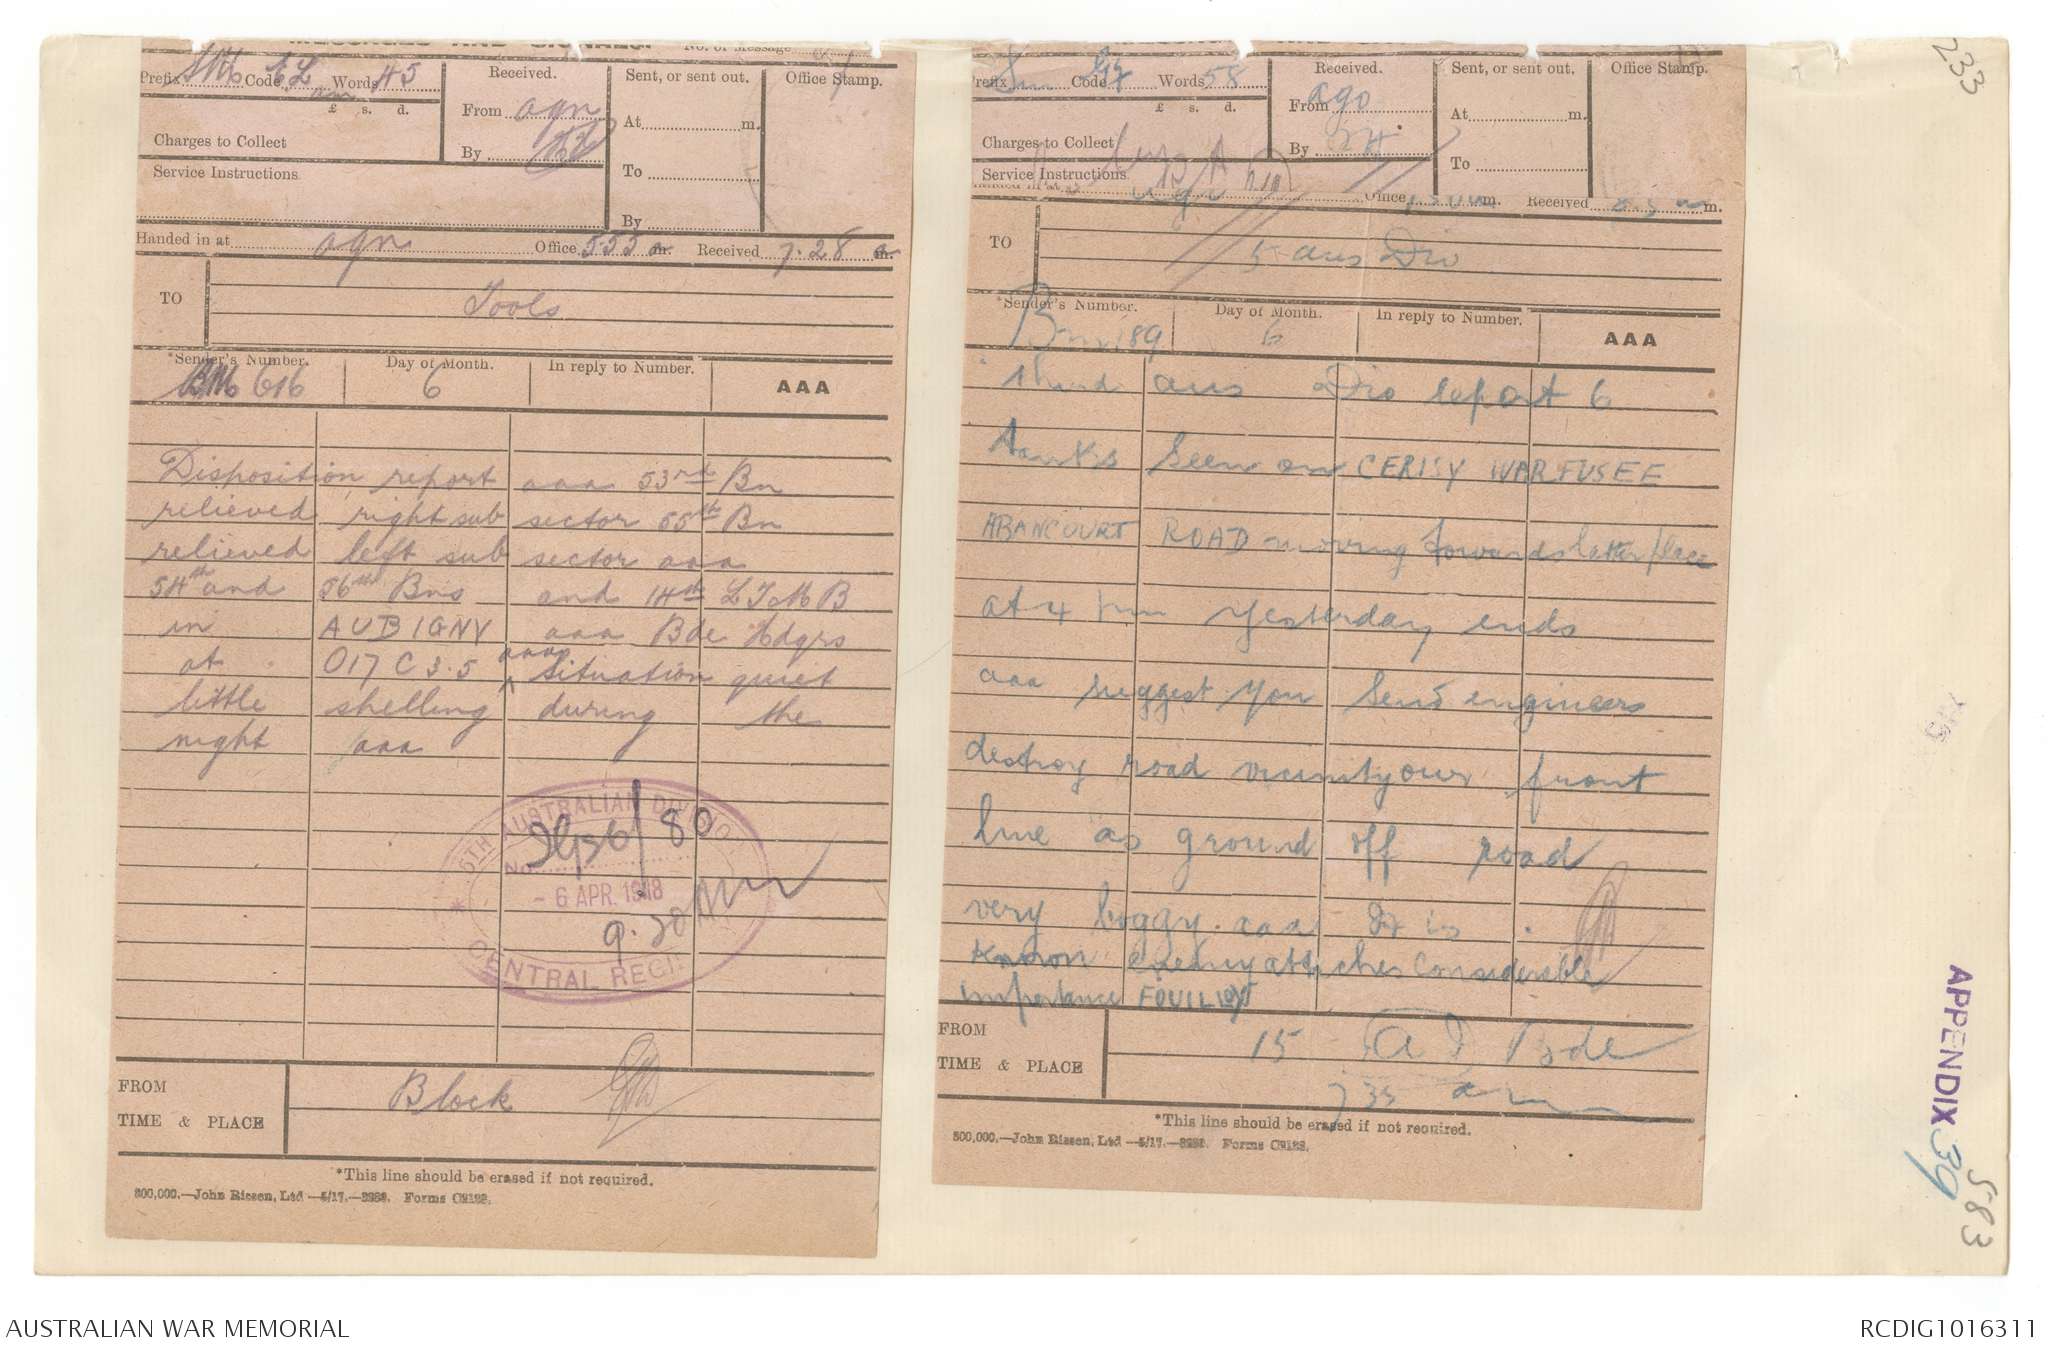 MESSAGES AND SIGNALS. No. of Message
Prefix SMb Code CL Words 45
am
£ s. d.
Charges to Collect
Service Instructions
Received.
From agn
By
Sent, or sent out.
At m.
To
By
Office Stamp.
Handed in at agn Office 5.55 a m. Received 7.28 a m.
TO Tools
*Sender's Number. Day of Month. In reply to Number. AAA
BM 616 6
Disposition report aaa 53rd Bn
relieved right sub sector 55th Bn
relieved left sub sector aaa
54th and 56th Bns and 14th LTMB
in AUBIGNY aaa Bde Hdqrs
at O17 C 3.5 aaa Situation quiet
little shelling during the
night aaa
5TH AUSTRALIAN DIVISION
No.
/80
- 6 APR. 1918
9.20 AM
* CENTRAL REGI
FROM Block
TIME & PLACE
*This line should be erased if not required.
500,000.—John Rissen, Ltd —5/17.—3938. Forms C2122.
Prefix Sm Code Words 58
£ s. d.
Charges to Collect
Service Instructions.
Received.
From ago
By
Sent, or sent out.
At m.
To
Office Stamp.
Office m. Received m.
TO 5 aus Div
*Sender's Number. Day of Month. In reply to Number. AAA
Bm 189 6
third aus Div report 6
tanks seen on CERISY WARFUSEE
ABANCOURT ROAD moving towards latter place
at 4 pm yesterday ends
aaa suggest you send engineers
destroy road vicinity our front
line as ground off road
very boggy. aaa It is
known enemy attaches considerable
importance FOUILLOY
FROM 15 A I Bde
TIME & PLACE 7 35 am
*This line should be erased if not required.
500,000.—John Rissen, Ltd —5/17.—3938. Forms C2122.
233
APPENDIX 39
583
AUSTRALIAN WAR MEMORIAL
RCDIG1016311